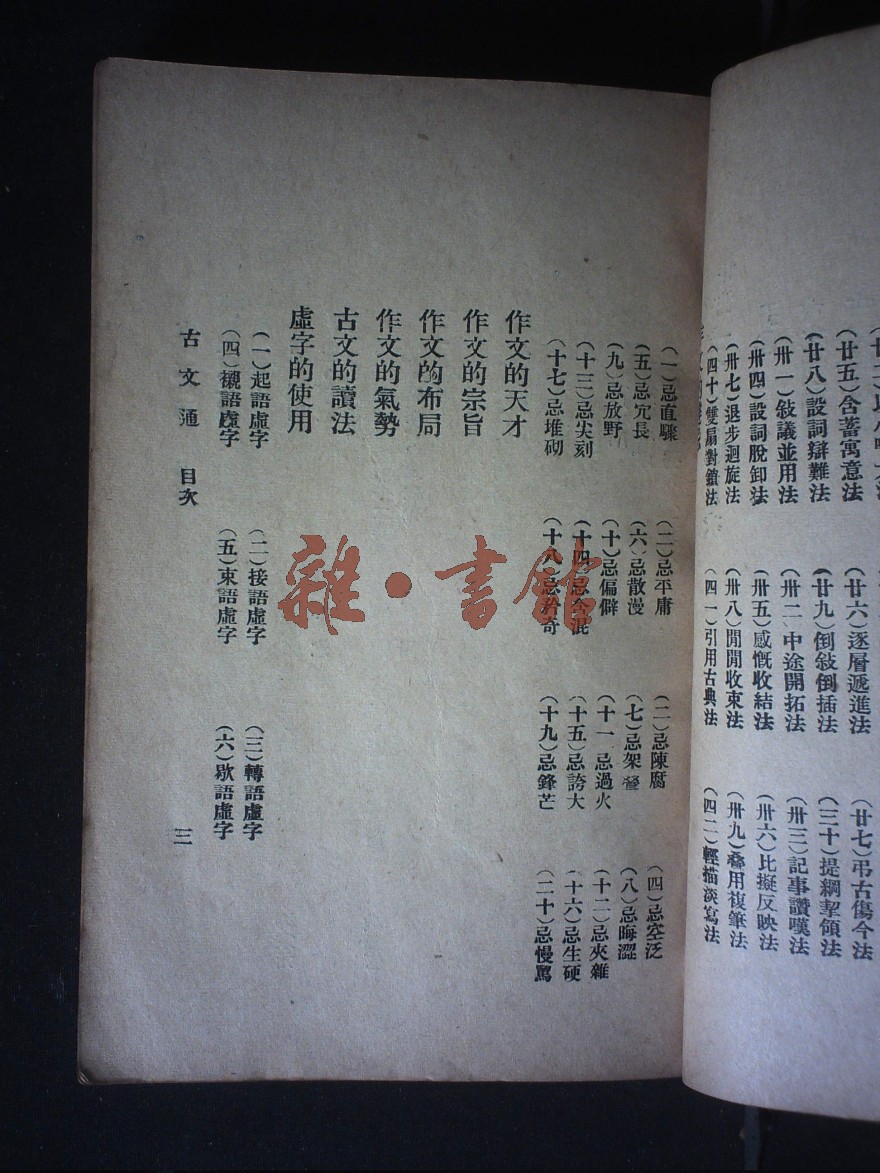 (廿五)含蓄寓意法 (廿六)逐層遞進法 (廿七)弔古傷今法
(廿八)設詞辯難法 (廿九)倒敍倒插法 (三十)提綱挈領法
(卅一)敍議並用法 (卅二)中途開拓法 (卅三)記事讚嘆法
(卅四)設詞脫卸法 (卅五)感慨收結法 (卅六)比擬反映法
(卅七)退步迴旋法 (卅八)閒閒收束法 (卅九)叠用複筆法
(四十)雙扇對鎖法 (四一)引用古典法 (四二)輕描淡寫法
(一)忌直驟 (二)忌平庸 (二)忌陳腐 (四)忌空泛
(五)忌冗長 (六)忌散漫 (七)忌架叠 (八)忌晦澀
(九)忌放野 (十)忌偏僻 (十一)忌過火 (十二)忌夾雜
(十三)忌尖刻 (十四)忌含混 (十五)忌誇大 (十六)忌生硬
(十七)忌堆砌 (十八)忌矜奇 (十九)忌鋒芒 (二十)忌慢罵
作文的天才
作文的宗旨
作文的布局
作文的氣勢
古文的讀法
虛字的使用
(一)起語虛字 (二)接語虛字 (三)轉語虛字
(四)襯語虛字 (五)束語虛字 (六)歇語虛字
古文通 目次 三
雜·書館